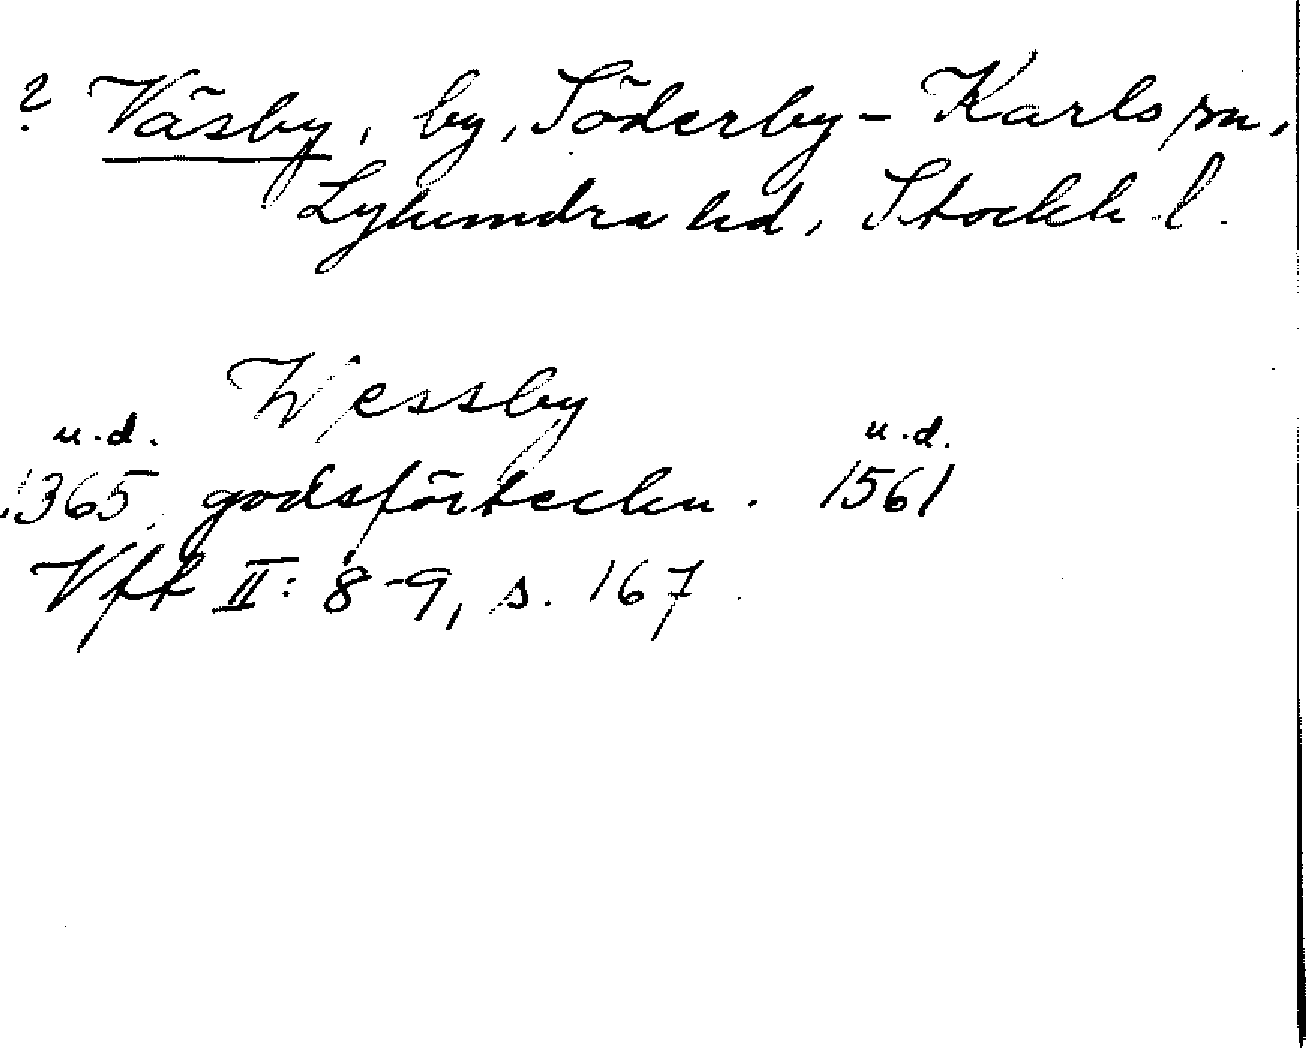 ? Väsby, by, Söderby-Karls sn,
Lyhundra hd, Stockh l.
Wessby
u.d. u.d.
1365, godsförteckn. 1561
Vff II: 8-9, s. 167